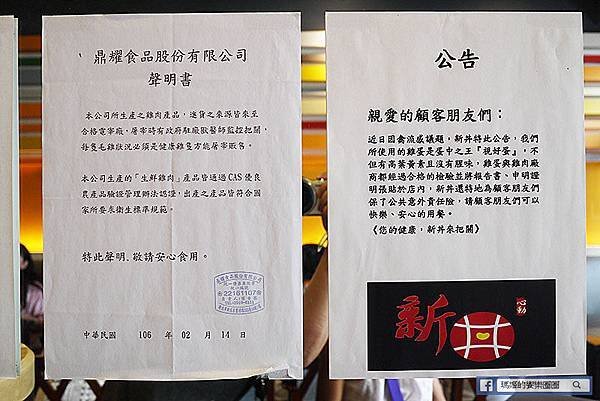 鼎耀食品股份有限公司
聲明書
本公司所生產之雞肉產品，進貨之來源皆來至
合格電宰廠，屠宰時有政府駐廠獸醫師監控把關，
每隻毛雞狀況必須是健康雞隻方能屠宰販售。
本公司生產的「生鮮雞肉」產品皆通過CAS優良
農產品驗證管理辦法認證，出產之產品皆符合國
家所要求衛生標準規範。
特此聲明，敬請安心食用。
22161107
中華民國 106 年 02 月 14 日
公告
親愛的顧客朋友們：
近日因禽流感議題，新丼特此公告，我們
所使用的雞蛋是蛋中之王『視好蛋』，不
但有高葉黃素且沒有腥味，雞蛋與雞肉廠
商都經過合格的檢驗並將報告書、申明證
明張貼於店內，新丼還特地為顧客朋友們
保了公共意外責任險，請顧客朋友們可以
快樂、安心的用餐。
《您的健康，新丼來把關》
新
心動
瑪姬的樂樂圈圈